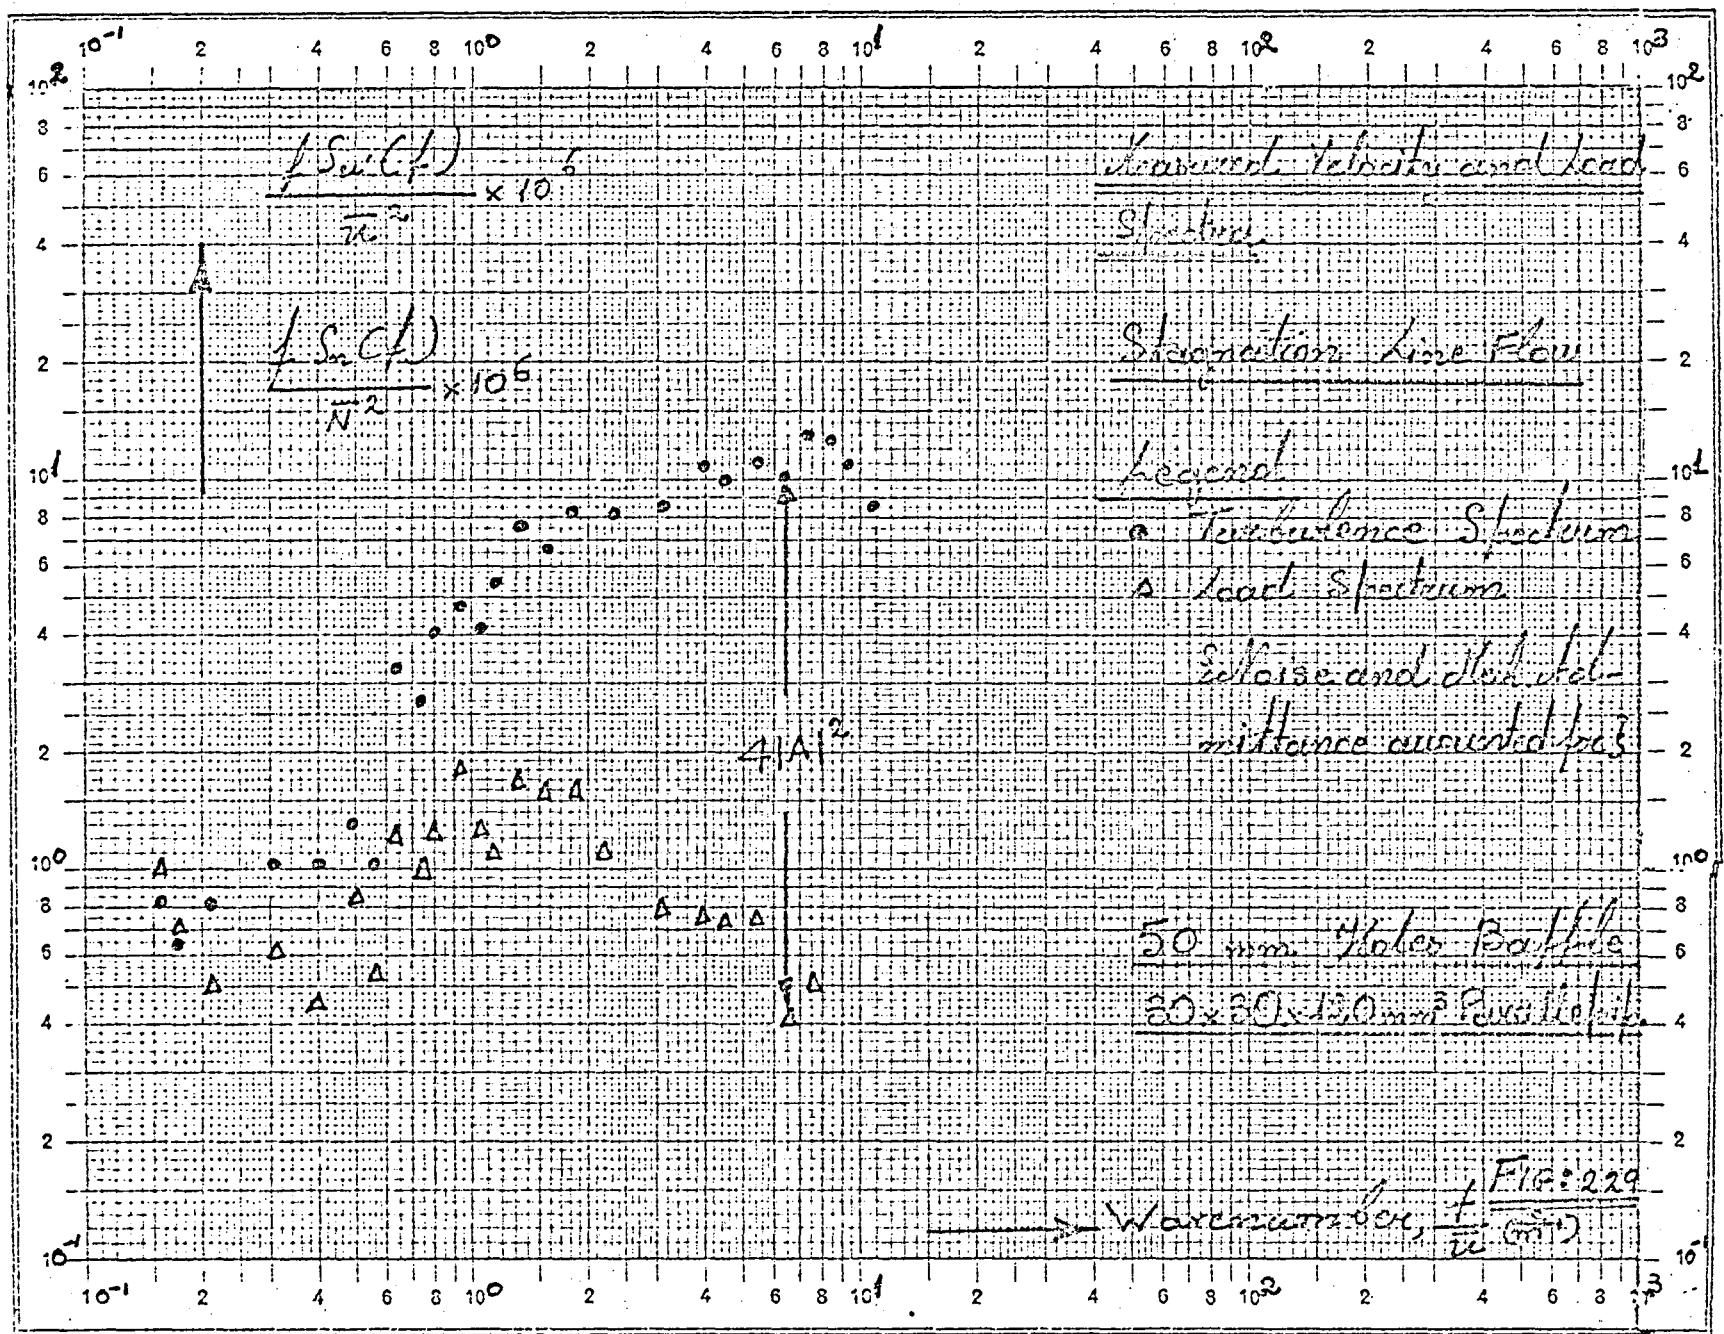 10⁻¹ 2 4 6 8 10⁰ 2 4 6 8 10¹ 2 4 6 8 10² 2 4 6 8 10³
10² 8 6 4 2 10¹ 8 6 4 2 10⁰ 8 6 4 2 10⁻¹
f Su(f)
ū² × 10⁶
f Sn(f)
N̄² × 10⁶
Measured Velocity and Load
Spectra
Stagnation Line Flow
Legend
Turbulence Spectrum
Δ Load Spectrum
Noise and
mittance
4|A|²
50 mm Holes Baffle
30x30x120 mm³
Wavenumber, f/ū (m⁻¹)
FIG: 229
10² 8 6 4 2 10¹ 8 6 4 2 10⁰ 8 6 4 2 10⁻¹
10⁻¹ 2 4 6 8 10⁰ 2 4 6 8 10¹ 2 4 6 8 10² 2 4 6 8 10³